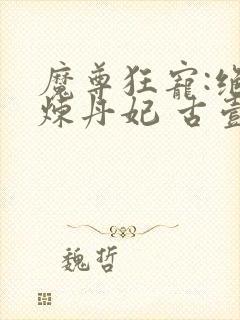 魔尊狂寵:絕
煉丹妃 古壹
魏哲